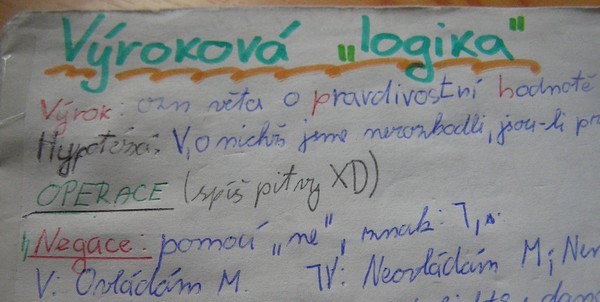 Výroková „logika"
Výrok: ozn věta o pravdivostní hodnotě
Hypotéza: V, o nichž jsme nerozhodli, jsou-li
OPERACE (spíš pitvy XD)
Negace: pomocí „ne", znak: ⌉,
V: Ovládám M. ⌉V: Neovládám M;